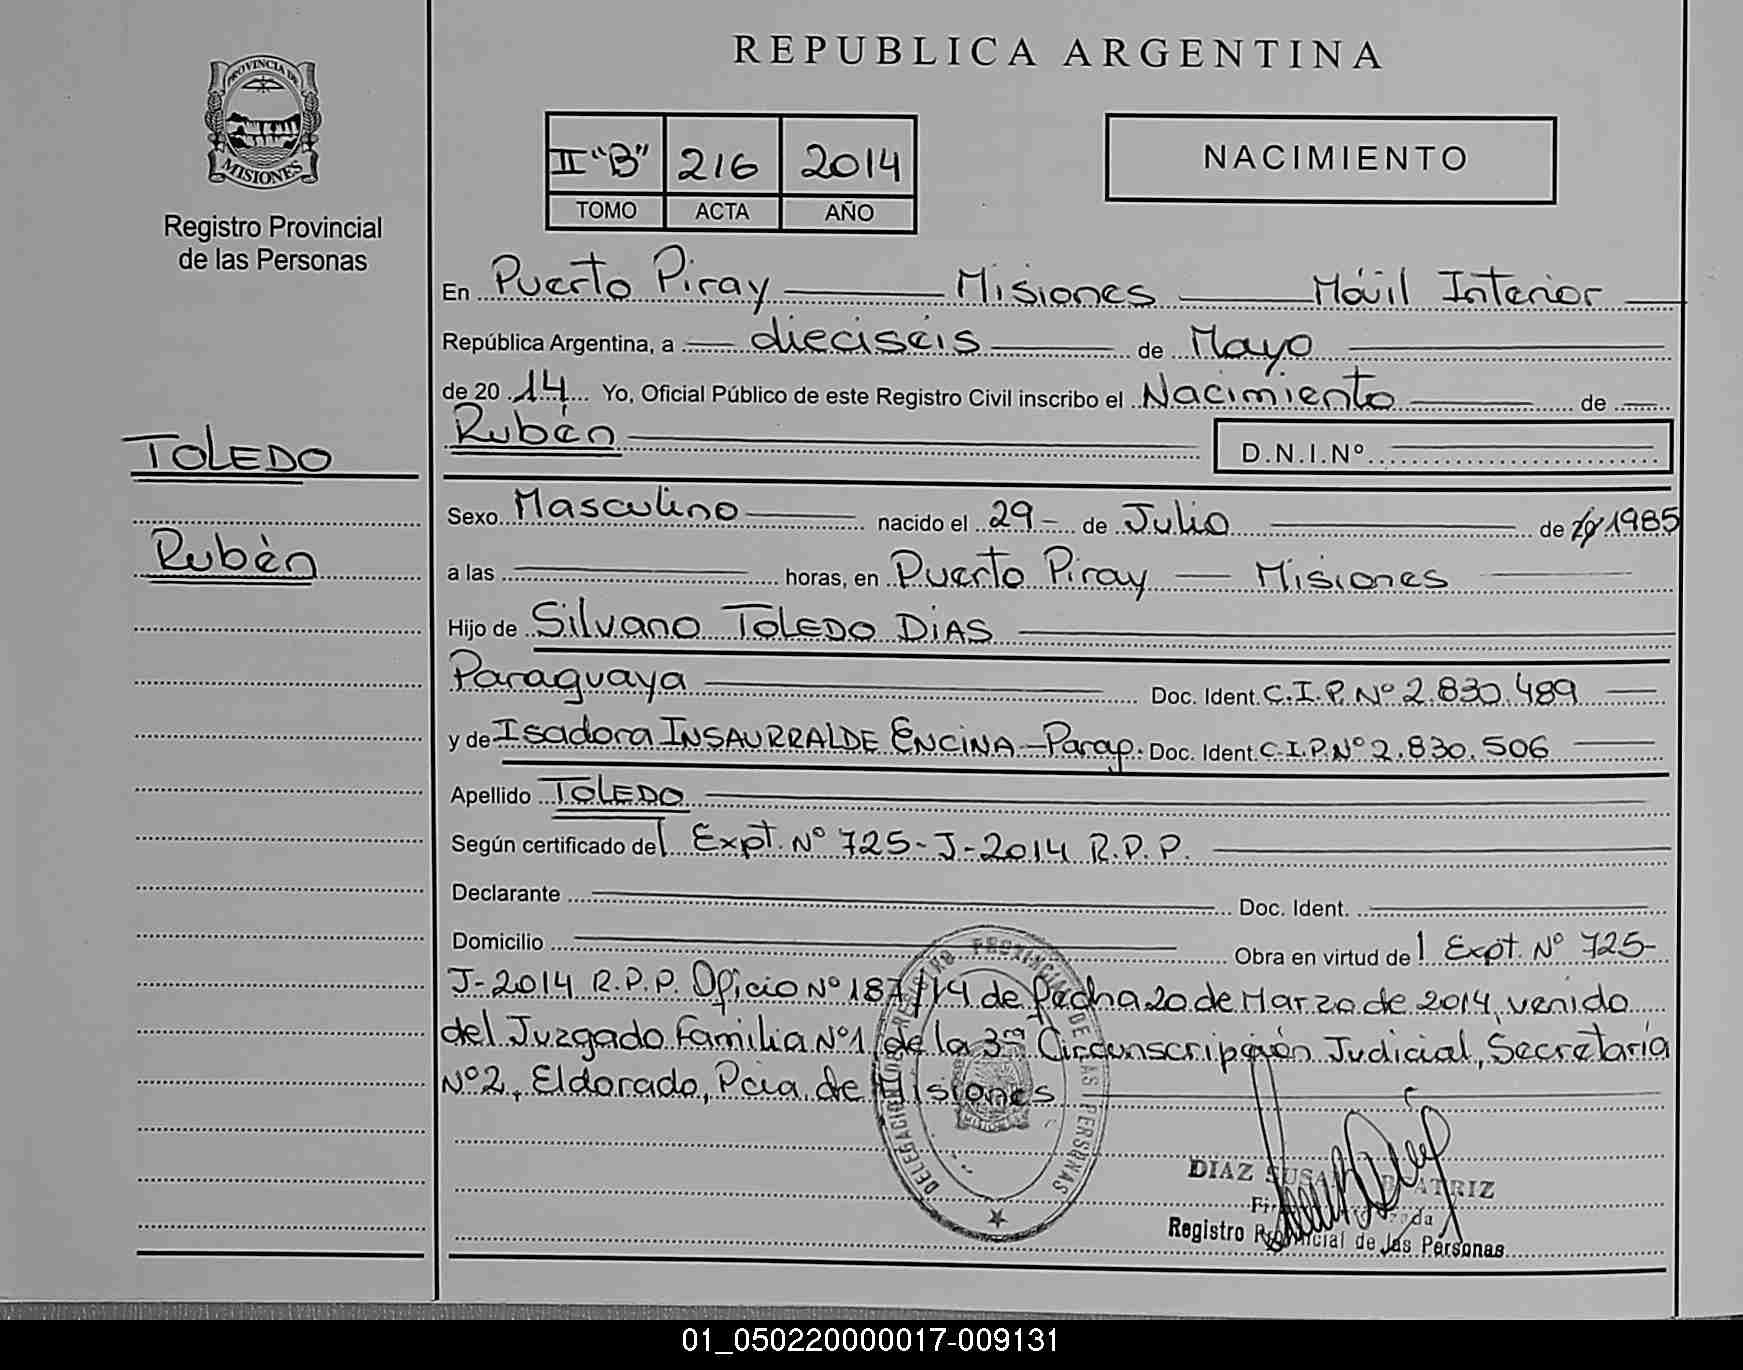 PROVINCIA DE
MISIONES
Registro Provincial
de las Personas
TOLEDO
Rubén
REPUBLICA ARGENTINA
II "B" 216 2014
TOMO ACTA AÑO
NACIMIENTO
En Puerto Piray Misiones Móvil Interior
República Argentina, a dieciséis de Mayo
de 2014 Yo, Oficial Público de este Registro Civil inscribo el Nacimiento de
Rubén D.N.I.Nº
Sexo Masculino nacido el 29 de Julio de 1985
a las horas, en Puerto Piray Misiones
Hijo de Silvano TOLEDO DIAS
Paraguaya Doc. Ident. C.I.P. Nº 2.830.489
y de Isadora INSAURRALDE ENCINA - Parag. Doc. Ident. C.I.P. Nº 2.830.506
Apellido TOLEDO
Según certificado del Expt. Nº 725-J-2014 R.P.P.
Declarante Doc. Ident.
Domicilio Obra en virtud del Expt. Nº 725-
J-2014 R.P.P. Oficio Nº 187/14 de fecha 20 de Marzo de 2014, venido
del Juzgado Familia Nº1, de la 3ra Circunscripción Judicial, Secretaría
Nº2, Eldorado, Pcia. de Misiones
DELEGACION DE REGISTRO PROVINCIAL DE LAS PERSONAS
DIAZ SUSANA BEATRIZ
Registro Provincial de las Personas
01_050220000017-009131